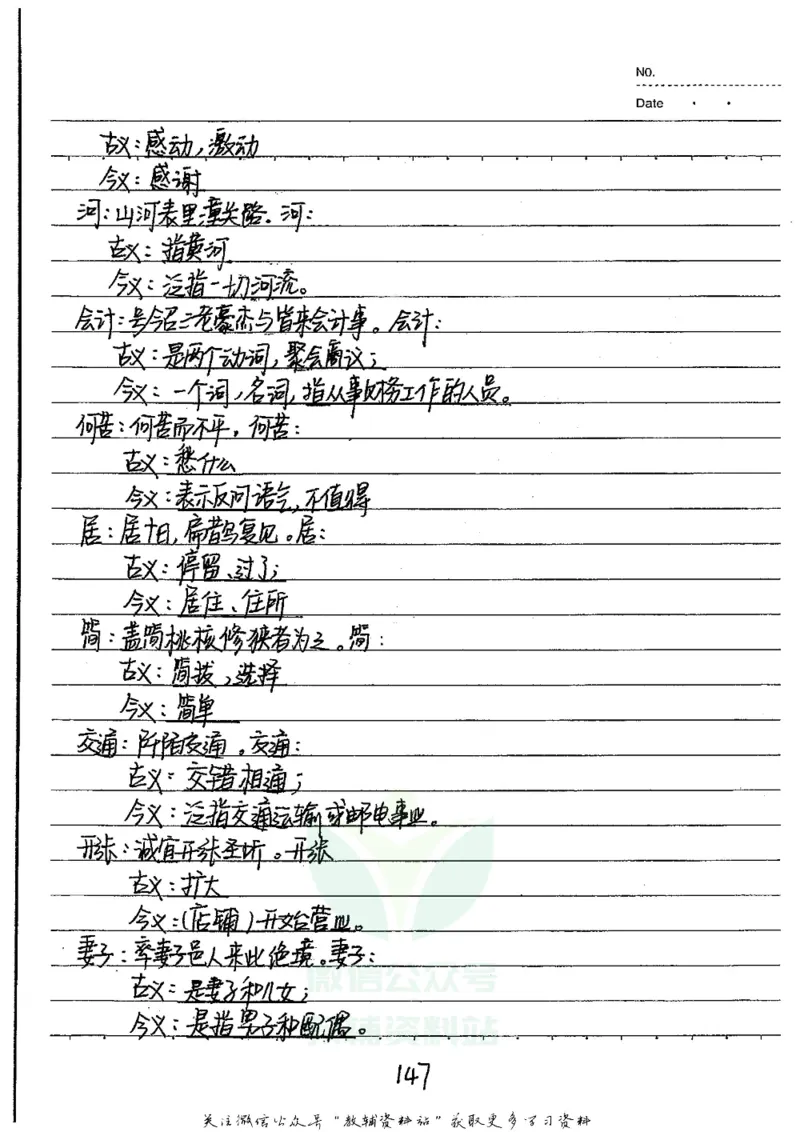 NO.
Date
古义：感动，激动
今义：感谢
河：山河表里潼关路。河：
古义：指黄河
今义：泛指一切河流。
会计：号令召三老豪杰与皆来会计事。会计：
古义：是两个动词，聚会商议；
今义：一个词，名词，指从事财务工作的人员。
何苦：何苦而不平。何苦：
古义：愁什么
今义：表示反问语气，不值得
居：居十日，扁鹊复见。居：
古义：停留、过了；
今义：居住、住所
简：盖简桃核修狭者为之。简：
古义：简拔，选择
今义：简单
交通：阡陌交通。交通：
古义：交错相通；
今义：泛指交通运输或邮电事业。
开张：诚宜开张圣听。开张
古义：扩大
今义：(店铺)开始营业。
妻子：率妻子邑人来此绝境。妻子：
古义：是妻子和儿女；
今义：是指男子和配偶。
微信公众号
教辅资料站
147
关注微信公众号"教辅资料站"获取更多学习资料